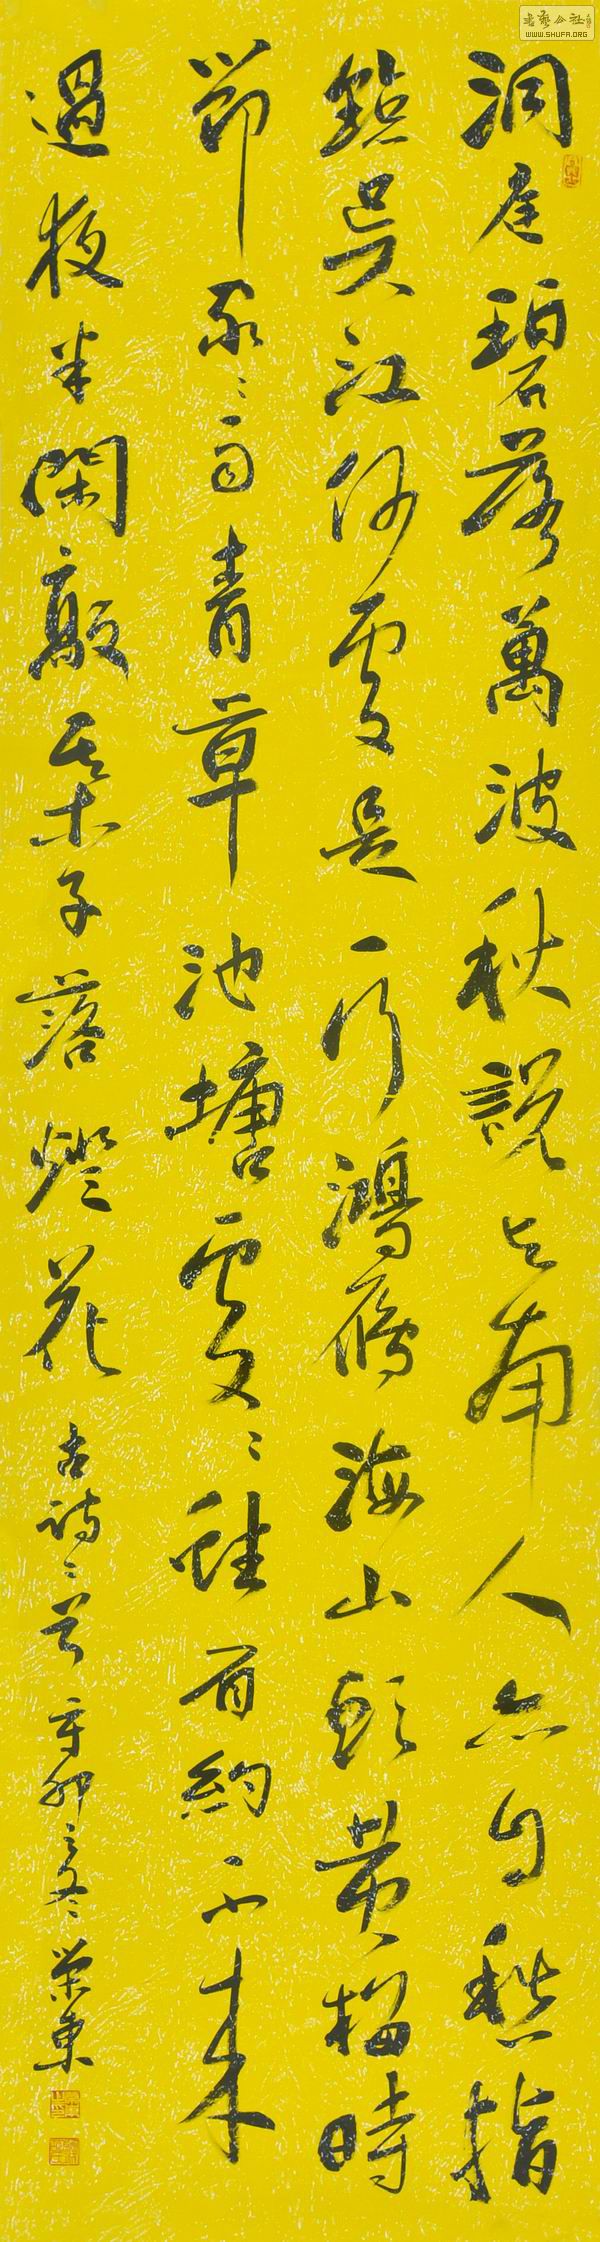 書藝公社
WWW.SHUFA.ORG
洞庭碧落萬波秋說與南人亦自愁指
點吳江何處是一行鴻雁海山頭黄梅時
節家〻雨青草池塘處〻蛙有約不來
過夜半閑敲棊子落燈花 古詩二首 辛卯之冬 榮東